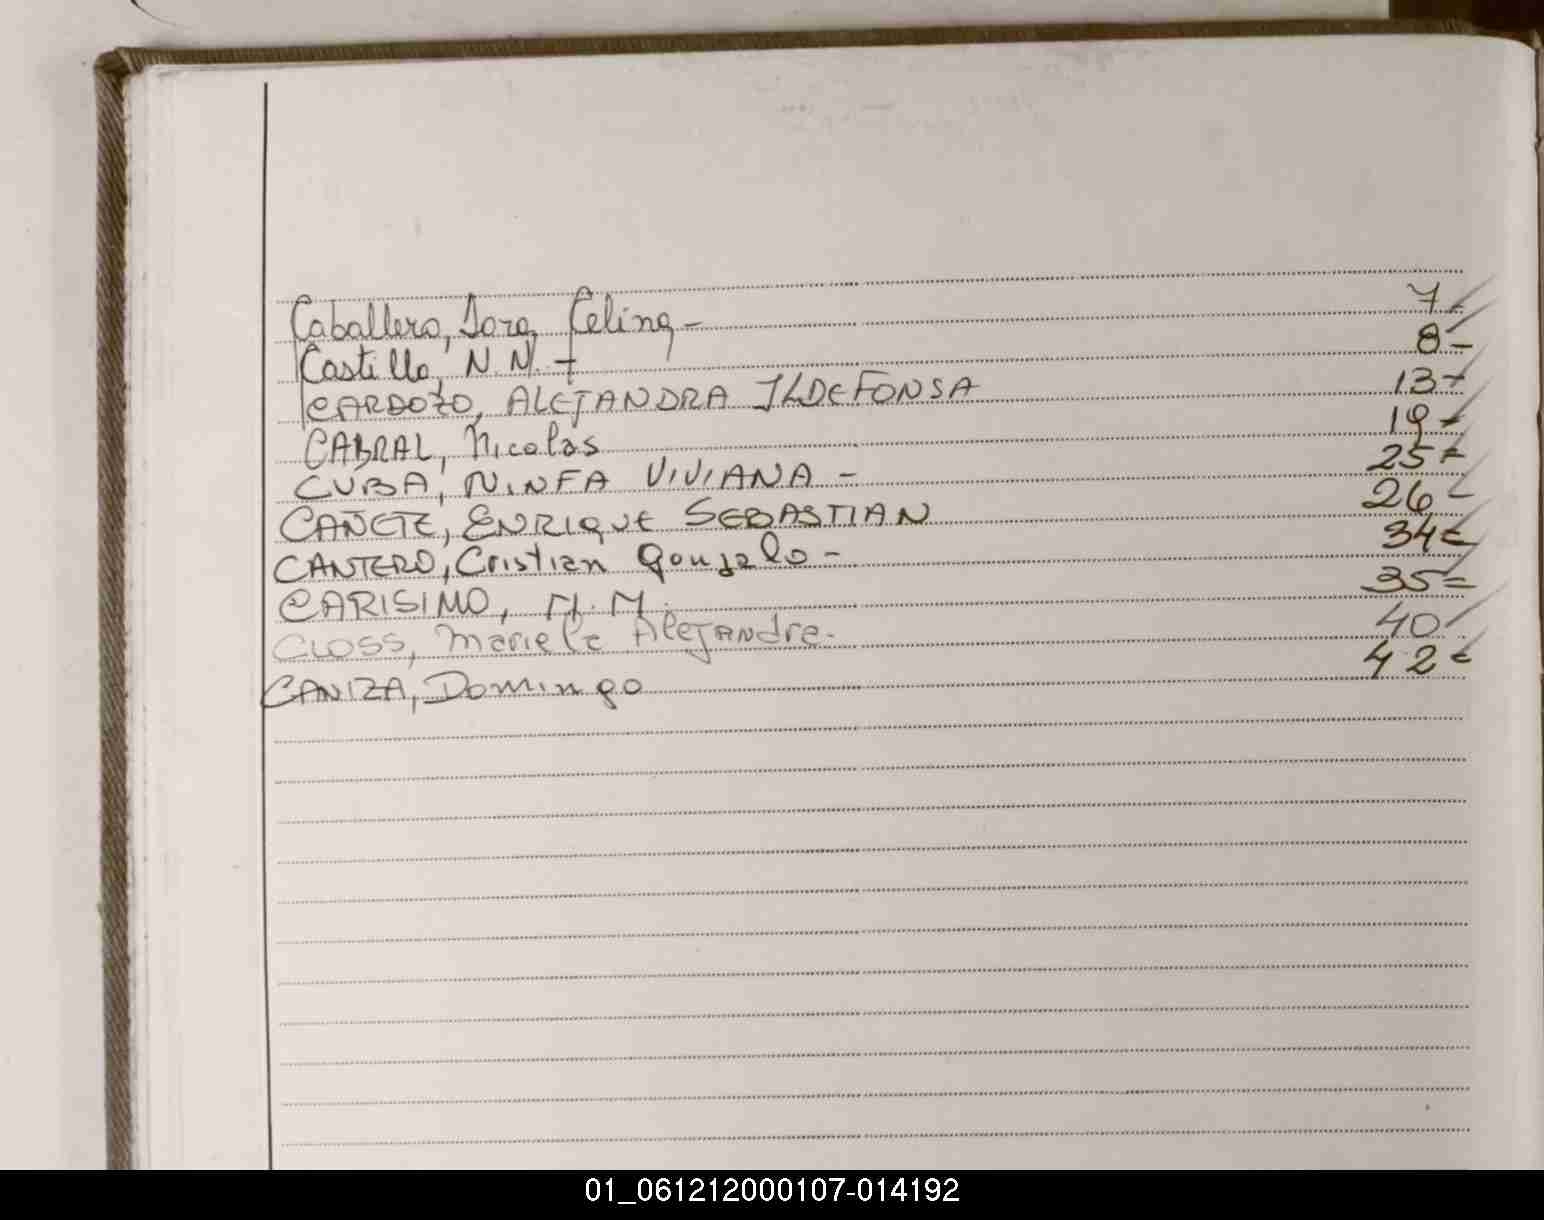 Caballero, Sara Celina - 7
Castillo, N.N. - 8
CARDOZO, ALEJANDRA ILDEFONSA 13
CABRAL, Nicolas 19
CUBA, NINFA VIVIANA - 25
CAÑETE, ENRIQUE SEBASTIAN 26
CANTERO, Cristian Gonzalo - 34
CARISIMO, M.M. 35
CLOSS, Mariela Alejandra. 40
CANIZA, Domingo 42
01_061212000107-014192